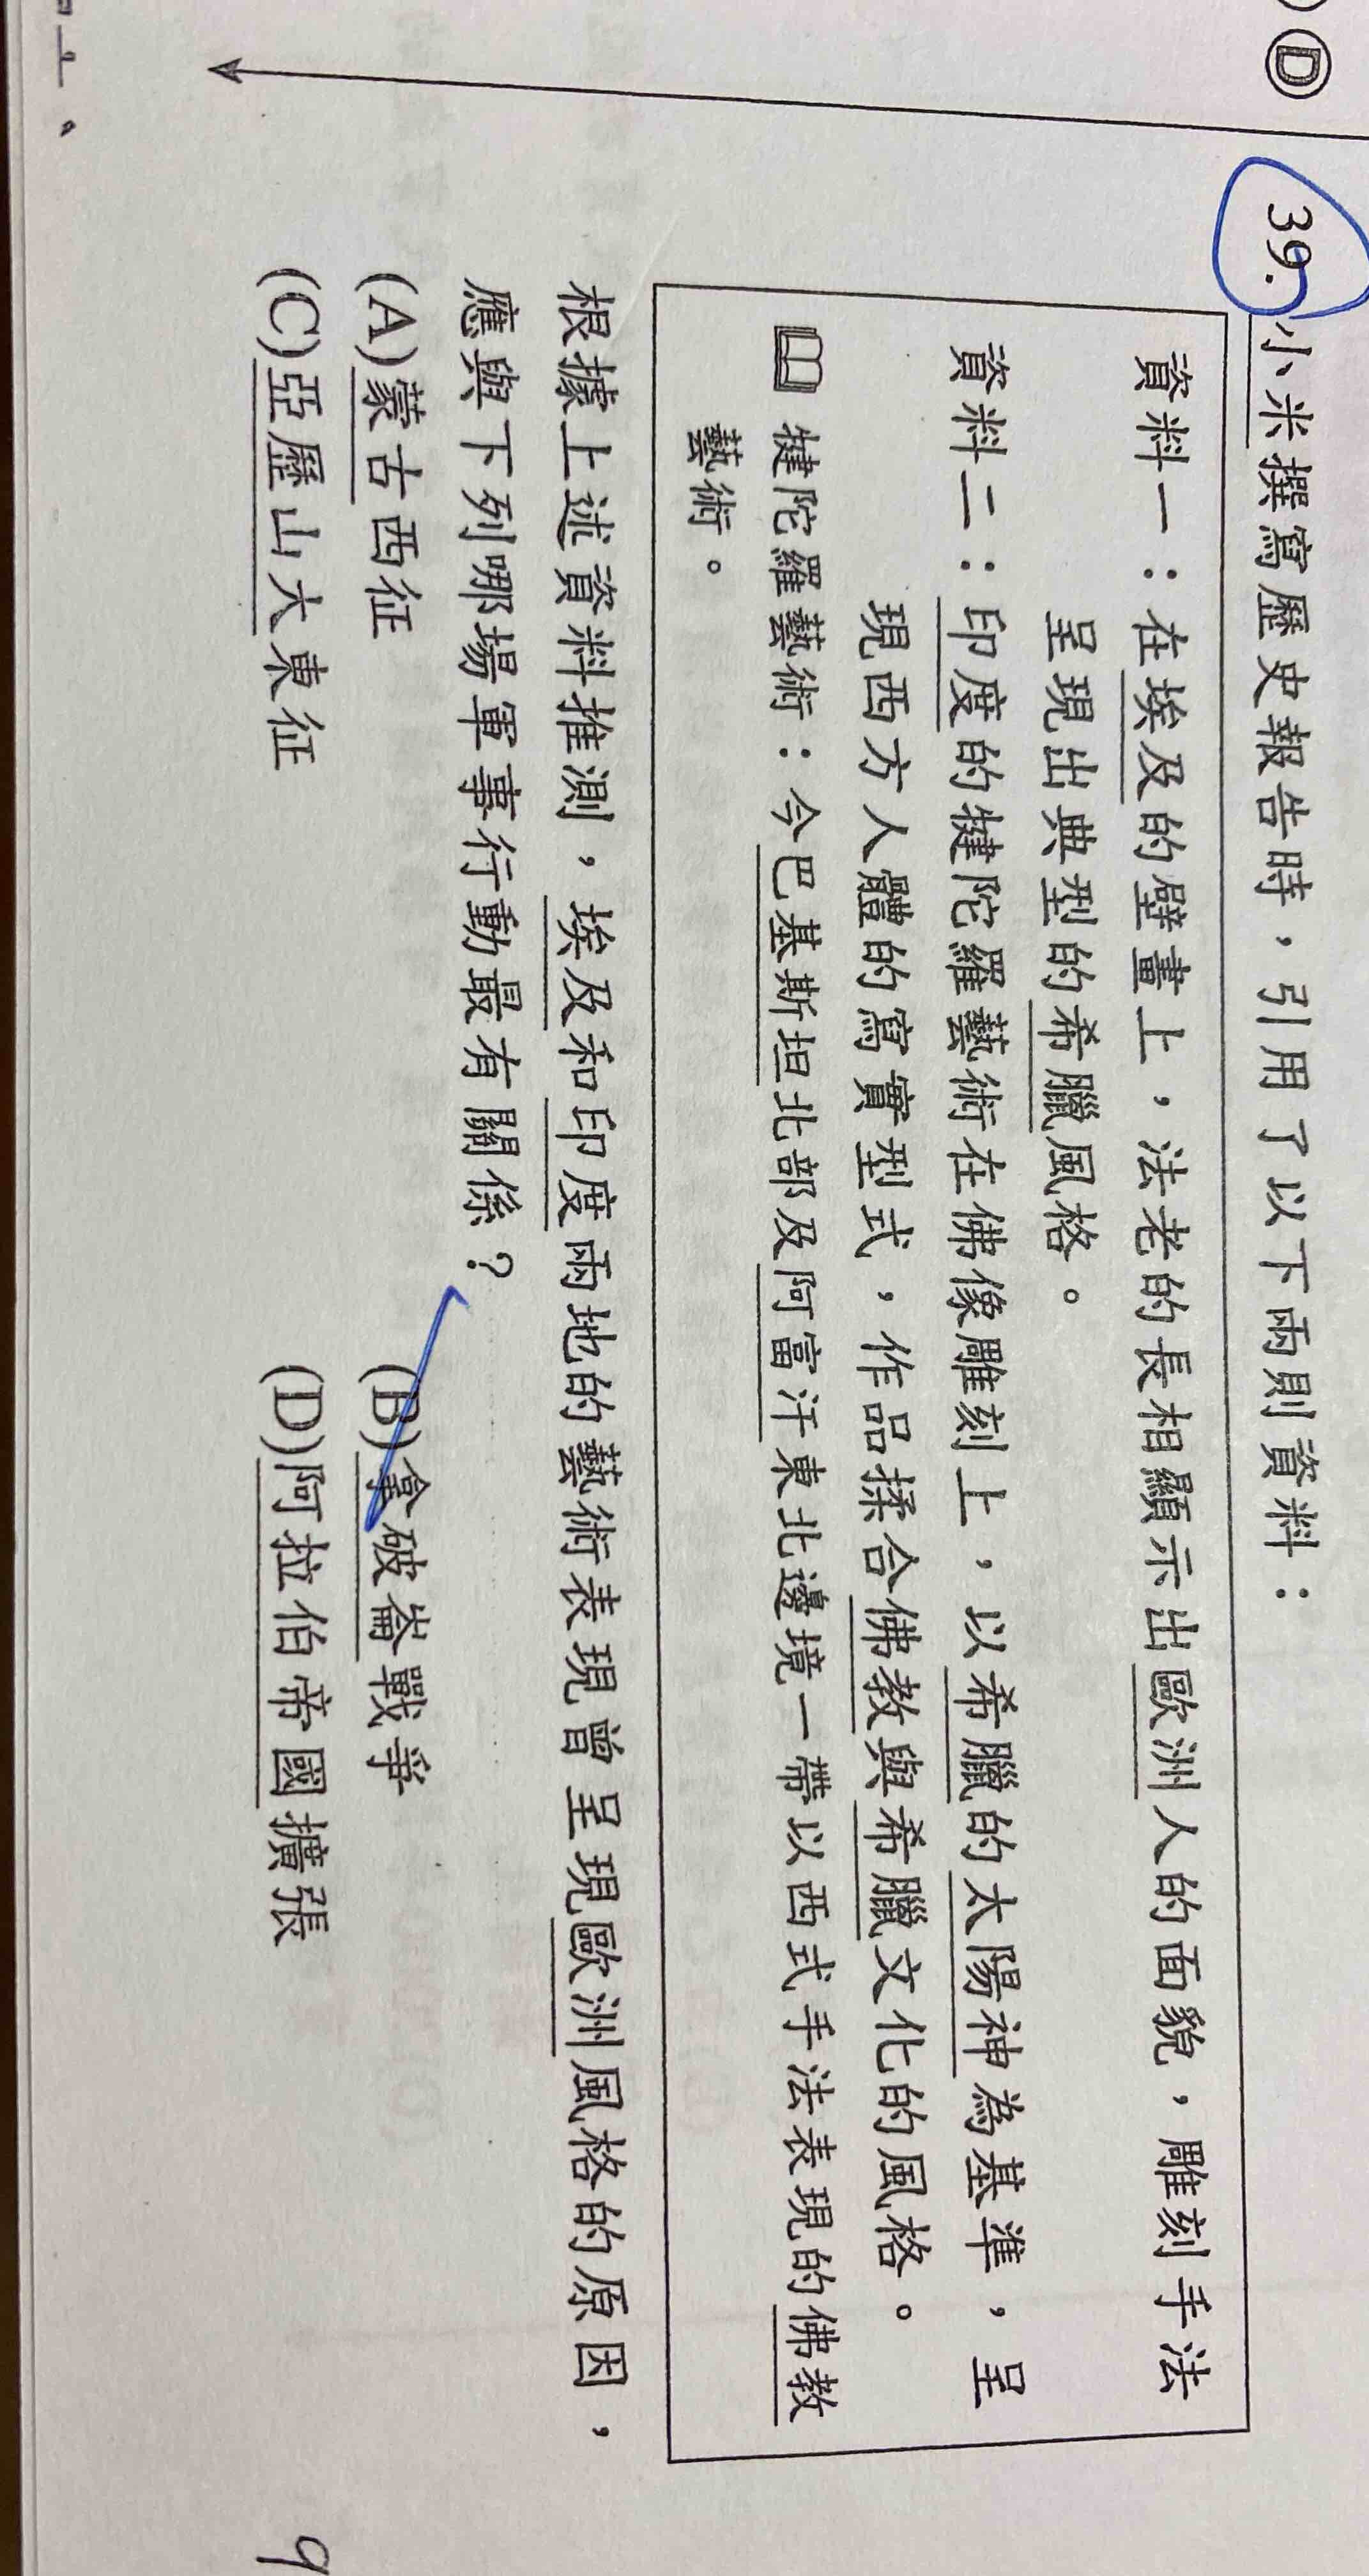 Ⓓ
39.小米撰寫歷史報告時，引用了以下兩則資料：
資料一：在埃及的壁畫上，法老的長相顯示出歐洲人的面貌，雕刻手法
呈現出典型的希臘風格。
資料二：印度的犍陀羅藝術在佛像雕刻上，以希臘的太陽神為基準，呈
現西方人體的寫實型式，作品揉合佛教與希臘文化的風格。
犍陀羅藝術：今巴基斯坦北部及阿富汗東北邊境一帶以西式手法表現的佛教
藝術。
根據上述資料推測，埃及和印度兩地的藝術表現曾呈現歐洲風格的原因，
應與下列哪場軍事行動最有關係？
(A)蒙古西征 (B)拿破崙戰爭
(C)亞歷山大東征 (D)阿拉伯帝國擴張
9